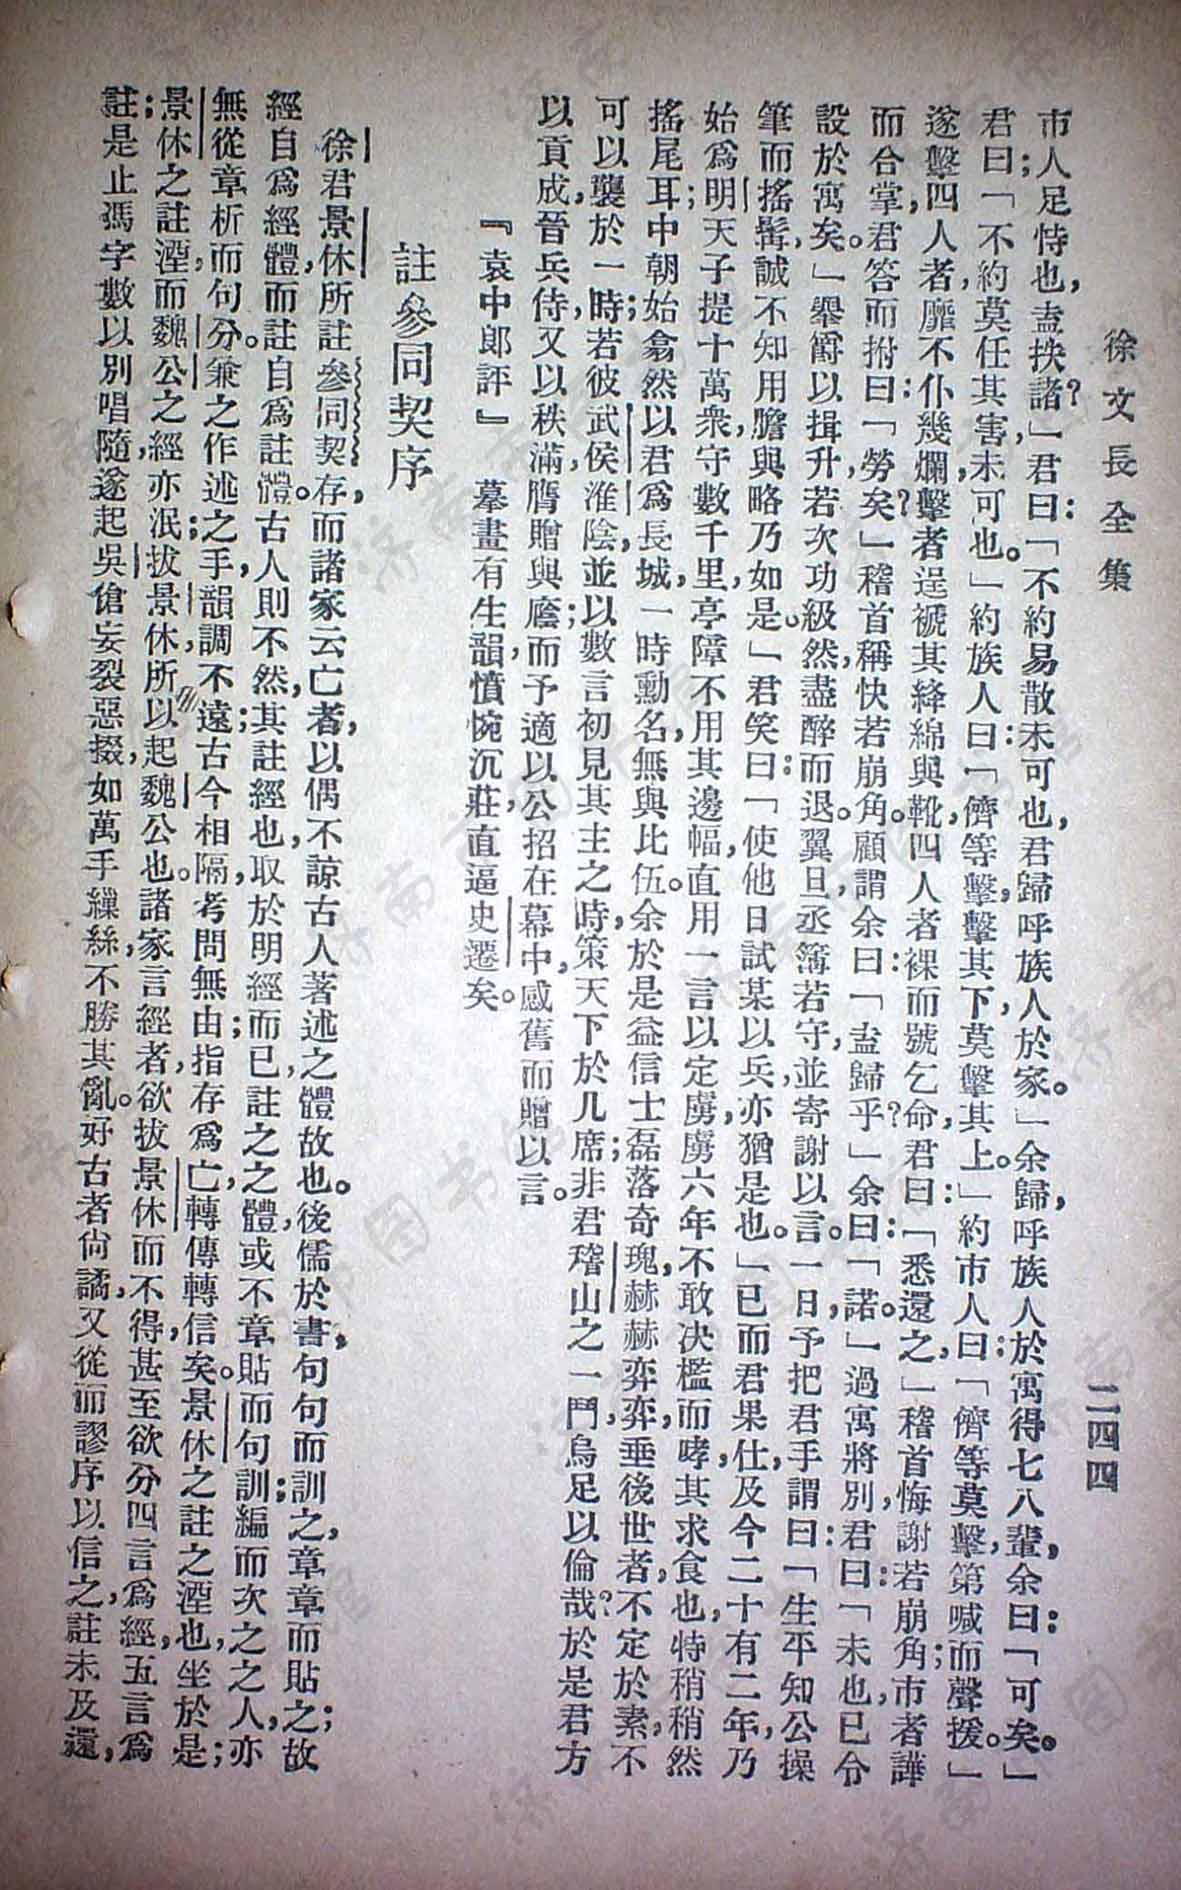 徐文長全集
二四四
市人足恃也,盍挾諸?」君曰:「不約易散,未可也,君歸呼族人於家。」余歸,呼族人於寓,得七八輩,余曰:「可矣。」
君曰:「不約,莫任其害,未可也。」約族人曰:「儕等擊,擊其下,莫擊其上。」約市人曰:「儕等莫擊,第喊而聲援。」
遂擊四人者,靡不仆,幾爛;擊者逞褫其絳綿與靴,四人者裸而號乞命,君曰:「悉還之,」稽首悔謝若崩角;市者譁
而合掌,君答而拊曰:「勞矣」稽首稱快若崩角。顧謂余曰:「盍歸乎?」余曰:「諾。」過寓將別,君曰:「未也,已令
設於寓矣。」舉爵以揖,升若次功級然,盡醉而退。翼旦丞簿若守,並寄謝以言。一日,予把君手謂曰:「生平知公操
筆而搖髯,誠不知用膽與略乃如是。」君笑曰:「使他日試某以兵,亦猶是也。」已而君果仕,及今二十有二年,乃
始爲明天子提十萬衆,守數千里亭障,不用其邊幅,直用一言以定虜,虜六年不敢决檻而哮其求食也,特稍稍然
搖尾耳;中朝始翕然以君爲長城,一時勳名,無與比伍。余於是益信士磊落奇瑰,赫赫弈弈,垂後世者,不定於素,不
可以襲於一時;若彼武侯淮陰,並以數言初見其主之時,策天下於几席;非君稽山之一鬥,烏足以倫哉?於是君方
以貢成,晉兵侍,又以秩滿,膺贈與廕;而予適以公招在幕中,感舊而贈以言。
『袁中郎評』 摹畫有生韻,憤惋沉莊,直逼史遷矣。
註參同契序
徐君景休所註參同契存,而諸家云亡者,以偶不諒古人著述之體故也。後儒於書,句句而訓之,章章而貼之;故
經自爲經體,而註自爲註體。古人則不然,其註經也,取於明經而已;註之之體,或不章貼而句訓,編而次之之人,亦
無從章析而句分。兼之作述之手,韻調不遠;古今相隔,考問無由,指存爲亡,轉傳轉信矣。景休之註之湮也,坐於是;
景休之註湮,而魏公之經亦泯;拔景休,所以起魏公也。諸家言經者,欲拔景休而不得,甚至欲分四言爲經,五言爲
註;是止馮字數以別唱隨,遂起吳傖妄裂惡掇,如萬手繅絲,不勝其亂。好古者尙譎,又從而謬序以信之,註未及還,